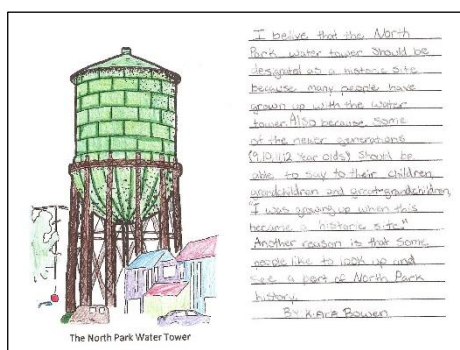 The North Park Water Tower
I belive that the North
Park water tower should be
designated as a historic site
because many people have
grown up with the water
tower. Also because some
of the newer generations
(9,10,11,12 year olds) should be
able to say to their children,
grandchildren and great-grandchildren,
"I was growing up when this
became a historic site."
Another reason is that some
people like to look up and
see a part of North Park
history.
By Kiara Bowen